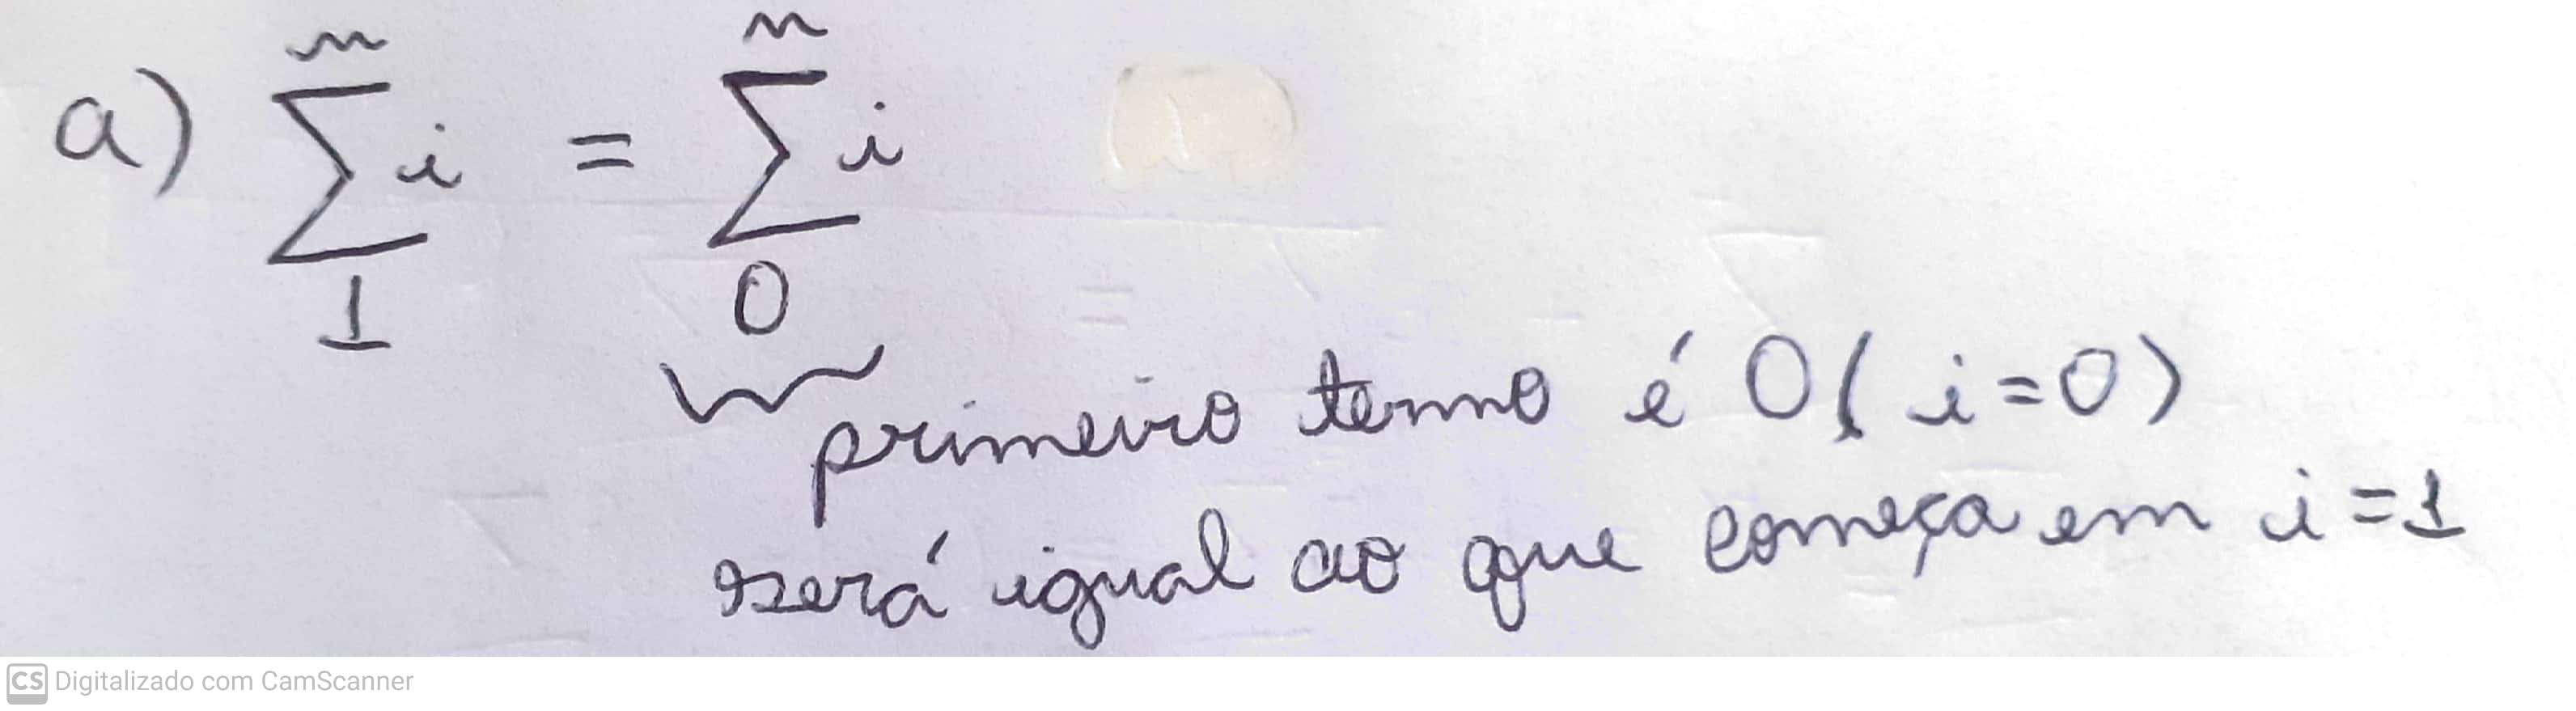 a) n∑1 i = n∑0 i
primeiro termo é 0 ( i=0)
será igual ao que começa em i=1
CS Digitalizado com CamScanner